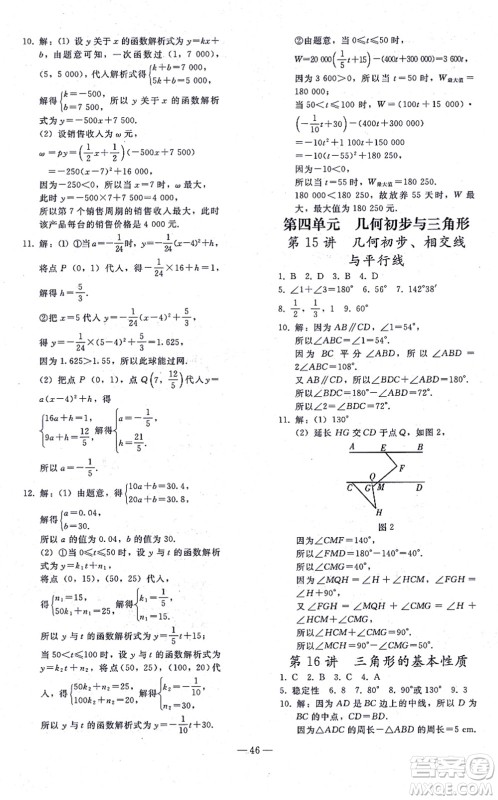 10. 解：(1) 设 y 关于 x 的函数解析式为 y=kx+
b，由题意可知，一次函数过 (1，7 000)，
(5，5 000)，代入解析式得 {k+b=7 000, 5k+b=5 000,
解得 {k=-500, b=7 500, 所以 y 关于 x 的函数解析
式为 y=-500x+7 500.
(2) 设销售收入为 ω 元，
ω=py=(1/2x+1/2)(-500x+7 500)
=-250(x-7)²+16 000.
因为-250<0，所以当 x=7 时，ω 有最大值
16 000，此时 y=-500×7+7 500=4 000.
所以第 7 个销售周期的销售收入最大，此时
该产品每台的销售价格是 4 000 元.
11. 解：(1) ①当 a=-1/24时，y=-1/24(x-4)²+h，
将点 P (0，1) 代入，得 -1/24×16+h=1，
解得 h=5/3.
②把 x=5 代入 y=-1/24(x-4)²+5/3，
得 y=-1/24×(5-4)²+5/3=1.625，
因为 1.625>1.55，所以此球能过网.
(2) 把点 P (0，1)，点 Q(7，12/5)代入y=
a(x-4)²+h，得
{16a+h=1, 9a+h=12/5, 解得 {a=-1/5, h=21/5.
所以 a=-1/5.
12. 解：(1) 由题意，得 {10a+b=30.4, 20a+b=30.8,
解得 {a=0.04, b=30.
所以 a 的值为 0.04，b 的值为 30.
(2) ①当 0≤t≤50 时，设 y 与 t 的函数解析
式为 y=k₁t+n₁，
将点 (0，15)，(50，25) 代入，得
{n₁=15, 50k₁+n₁=25, 解得 {k₁=1/5, n₁=15.
所以 y 与 t 的函数解析式为 y=1/5t+15.
当 50<t≤100 时，设 y 与 t 的函数解析式为
y=k₂t+n₂，将点 (50，25)，(100，20) 代
入，得 {50k₂+n₂=25, 100k₂+n₂=20, 解得 {k₂=-1/10, n₂=30.
所以 y 与 t 的函数解析式为 y=-1/10t+30.
②由题意，当 0≤t≤50 时，
W=20 000(1/5t+15)-(400t+300 000)=3 600t，
因为 3 600>0，所以当 t=50 时，W最大值=
180 000；
当 50<t≤100 时，W=(100t+15 000)·
(-1/10t+30)-(400t+300 000)
=-10(t-55)²+180 250，
因为-10<0，所以当 t=55 时，W最大值=
180 250.
综上所述，当 t 为 55 时，W 最大，最大值为
180 250 元.
第四单元 几何初步与三角形
第 15 讲 几何初步、相交线
与平行线
1. B 2. D 3. C 4. B
5. ∠1+∠3=180° 6. 56° 7. 142°38′
8. 1/2，1/2，1 9. 60°
10. 解：因为 AB∥CD，∠1=54°，
所以∠ABC=∠1=54°.
因为 BC 平分∠ABD，所以∠ABD=
2∠ABC=108°.
因为 AB∥CD，所以∠ABD+∠CDB=180°.
所以∠CDB=180°-∠ABD=72°.
所以∠2=∠CDB=72°.
11. 解：(1) 130°
(2) 延长 HG 交 CD 于点 M，如图 2，
A E B
F
Q
C G M D
H
图 2
因为∠CMF=140°，
所以∠FMD=180°-∠CMF=40°.
因为∠MQH=∠CHQ+∠HCM，
∠MQH=180°-90°=90°，
所以∠HCM+∠CHM=90°.
所以∠MCH=90°-∠CHM.
第 16 讲 三角形的基本性质
1. C 2. B 3. D 4. A
5. 稳定性 6. 8 7. 8，90°或30° 9. 3
10. 解：因为 AD 是 BC 边上的中线，所以 BD=CD.
因为△ADC 周长－△ABD 周长=5 cm.
— 46 —